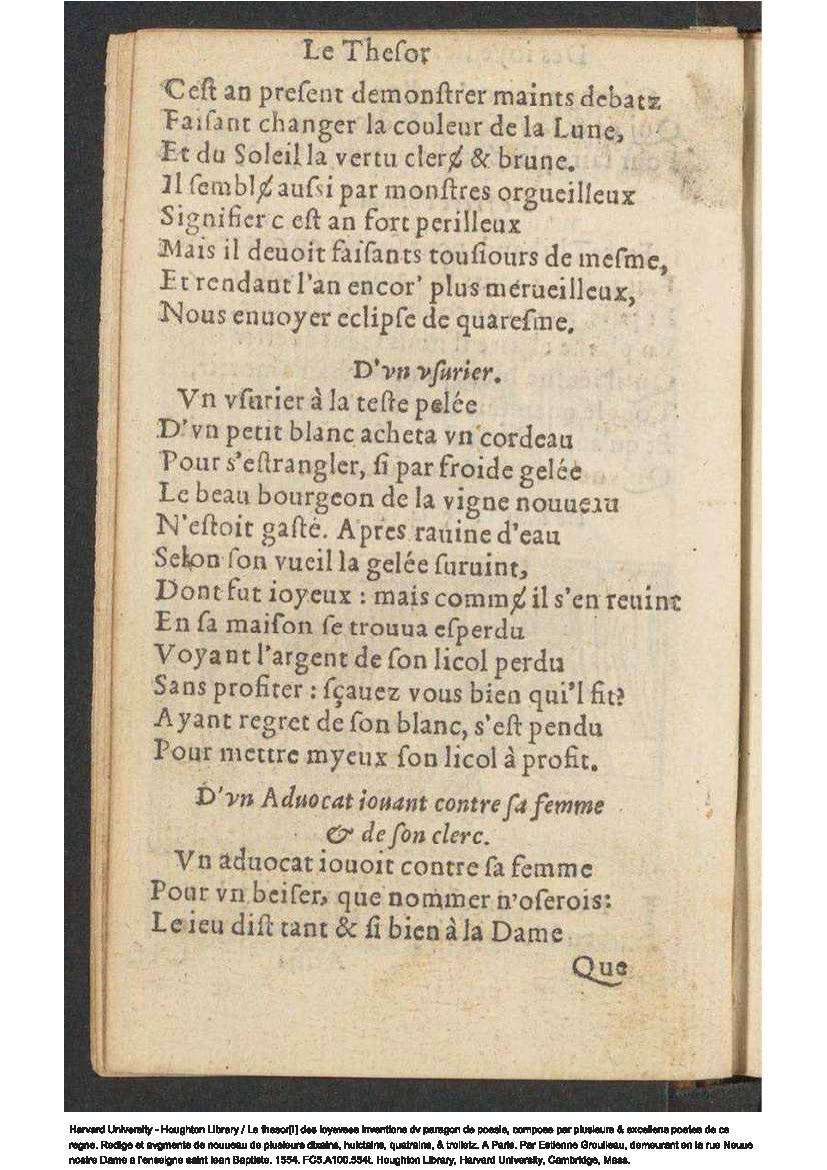 Le Theſor
Ceſt an preſent demonſtrer maints debatz
Faiſant changer la couleur de la Lune,
Et du Soleil la vertu cler&#x247; & brune.
Il ſembl&#x247; auſsi par monſtres orgueilleux
Signifier c eſt an fort perilleux
Mais il deuoit faiſants touſiours de meſme,
Et rendant l'an encor' plus merueilleux,
Nous enuoyer eclipſe de quareſme.
D'vn vſurier.
Vn vſurier à la teſte pelée
D'vn petit blanc acheta vn cordeau
Pour s'eſtrangler, ſi par froide gelée
Le beau bourgeon de la vigne nouueau
N'eſtoit gaſté. Apres rauine d'eau
Selon ſon vueil la gelée ſuruint,
Dont fut ioyeux : mais commɇ il s'en reuint
En ſa maiſon ſe trouua eſperdu
Voyant l'argent de ſon licol perdu
Sans profiter : ſçauez vous bien qui'l fit?
Ayant regret de ſon blanc, s'eſt pendu
Pour mettre myeux ſon licol à profit.
D'vn Aduocat iouant contre ſa femme
& de ſon clerc.
Vn aduocat iouoit contre ſa femme
Pour vn beiſer, que nommer n'oſerois:
Le ieu diſt tant & ſi bien à la Dame
Que
Harvard University - Houghton Library / Le thesor[i] des ioyevses inventions dv paragon de poesie, compose par plusieurs & excellens poetes de ce
regne. Redige et avgmente de nouueau de plusieurs dixains, huictains, quatrains, & triolletz. A Paris. Par Estienne Groulleau, demeurant en la rue Neuue
nostre Dame a l'enseigne saint Iean Baptiste. 1554. FC5.A100.554t. Houghton Library, Harvard University, Cambridge, Mass.